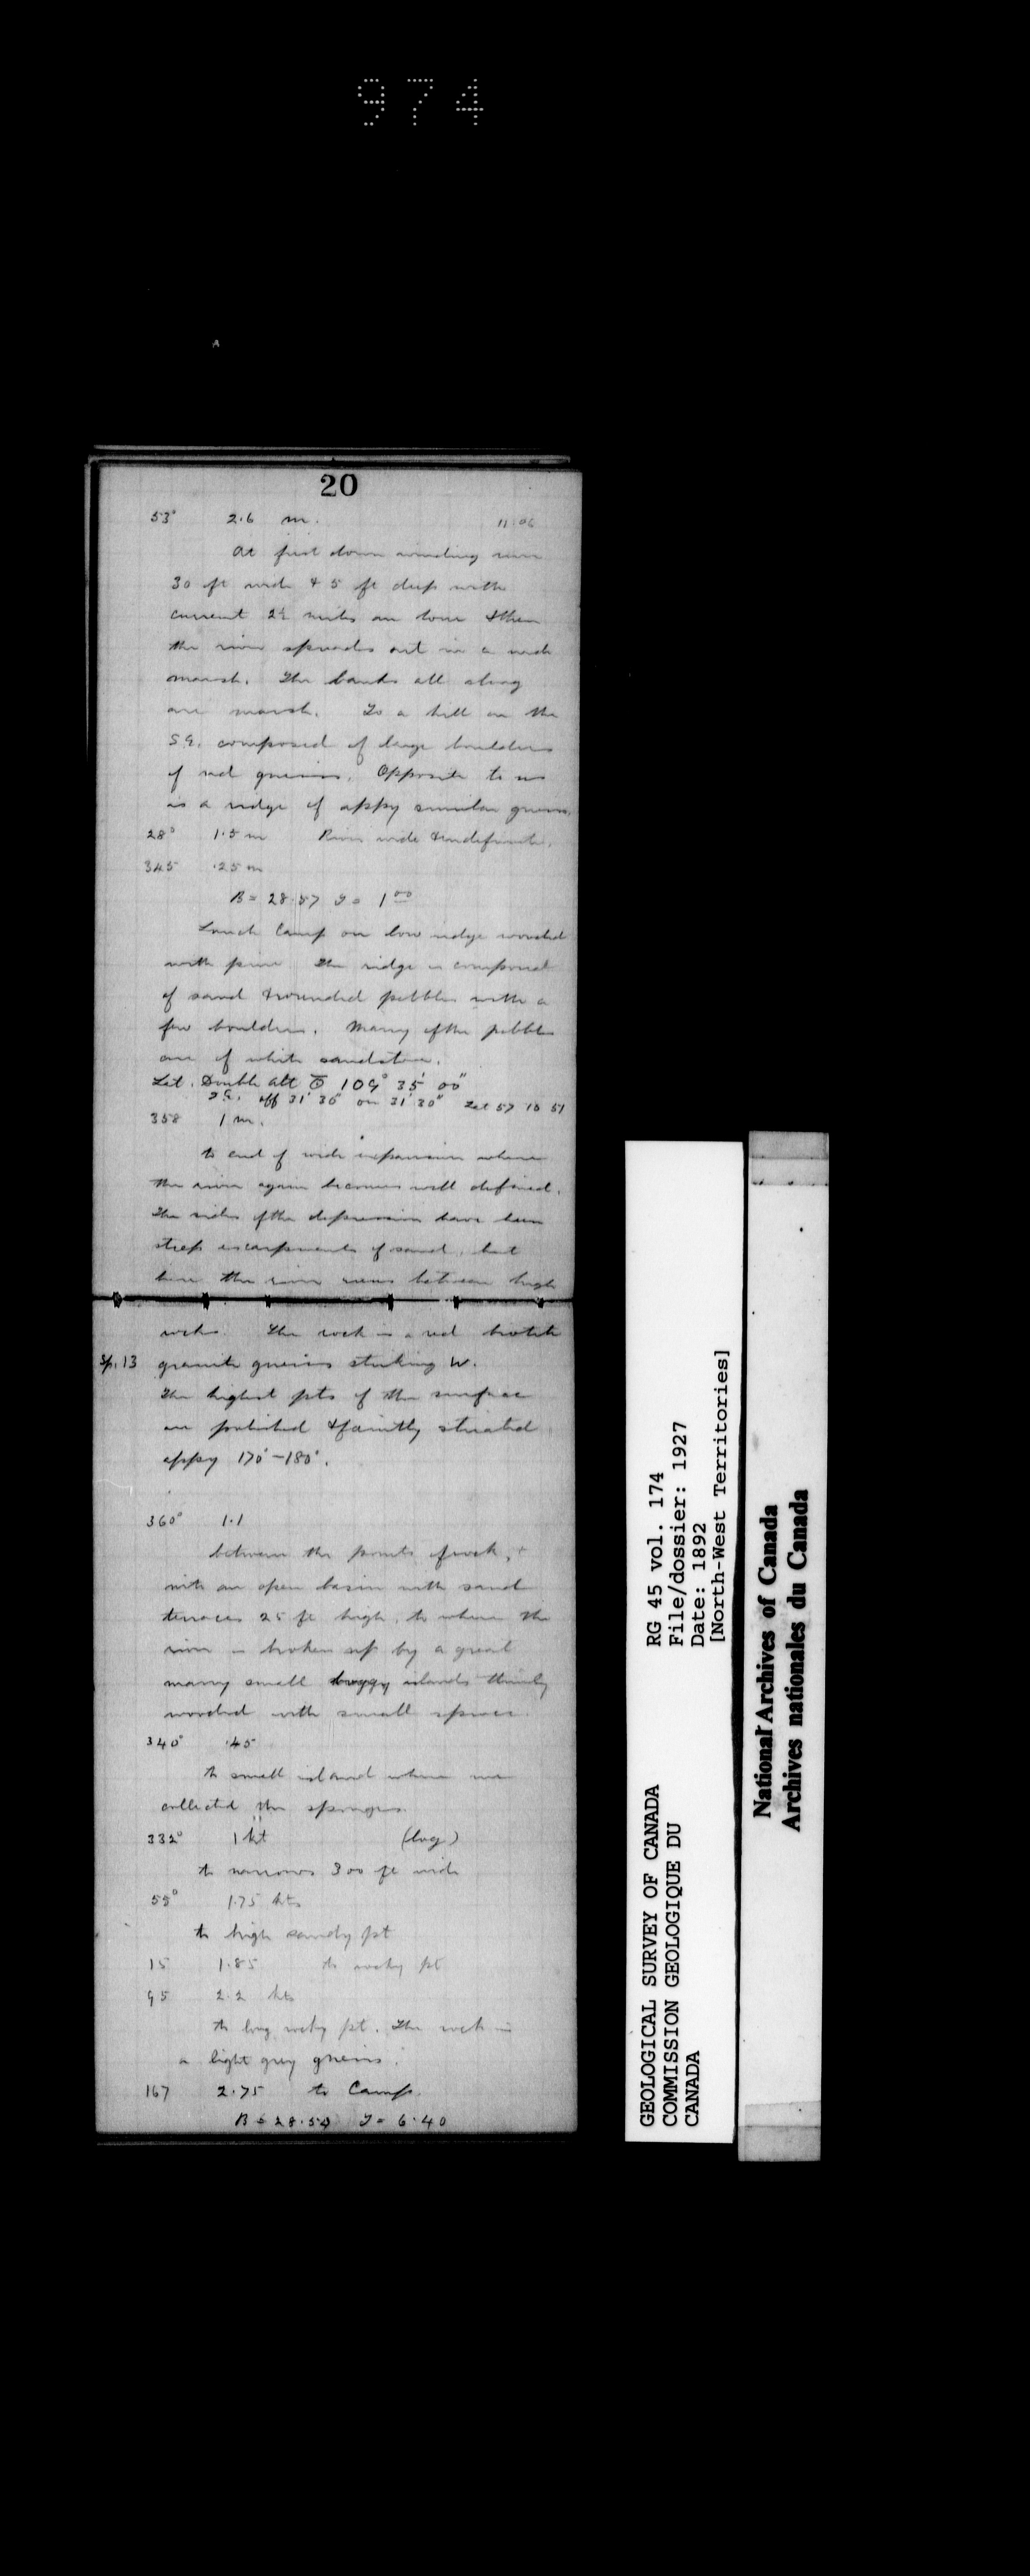 974
20
53° 2.6 m. 11.05
At first down winding river
30 ft wide & 5 ft deep with
current 2½ miles an hour & then
the river spreads out in a wide
marsh. The banks all along
are marsh. To a hill on the
S.E. composed of large boulders
of red gneiss. Opposite to us
is a ridge of appy similar gneiss.
28° 1.5 m River wide & indefinite.
345 .25 m
B = 28.57 T = 1 00
Lunch Camp on low ridge wooded
with pine The ridge is composed
of sand & rounded pebbles with a
few boulders. Many of the pebbles
are of white sandstone.
Lat. Double alt 109° 35' 00"
off 31' 30" on 31' 30" Lat 57 10 51
358 1 m.
to end of wide expansion where
the river again becomes well defined.
The sides of the depression have been
steep escarpments of sand, but
here the river runs between high
rocks. The rock is a red biotite
Sp. 13 granite gneiss striking W.
The highest pts of the surface
are polished & faintly striated
appy 170°-180°.
360° 1.1
between the points of rock, &
into an open basin with sand
terraces 25 ft high, to where the
river is broken up by a great
many small boggy islands thinly
wooded with small spruce.
340° .45
to small island where we
collected the sponges.
332° 1 kt (log)
to narrows 300 ft wide
55° 1.75 kts
to high sandy pt
15 1.85 to rocky pt
95 2.2 kts
to long rocky pt. The rock is
a light grey gneiss.
167 2.75 to Camp.
B = 28.50 T = 6.40
GEOLOGICAL SURVEY OF CANADA
COMMISSION GEOLOGIQUE DU
CANADA
RG 45 vol. 174
File/dossier: 1927
Date: 1892
[North-West Territories]
National Archives of Canada
Archives nationales du Canada